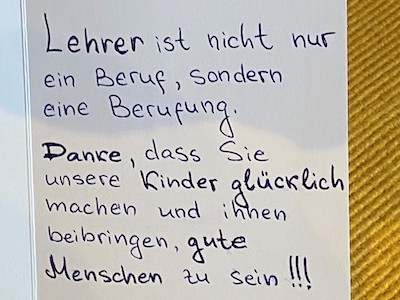 Lehrer ist nicht nur
ein Beruf, sondern
eine Berufung.
Danke, dass Sie
unsere Kinder glücklich
machen und ihnen
beibringen, gute
Menschen zu sein!!!